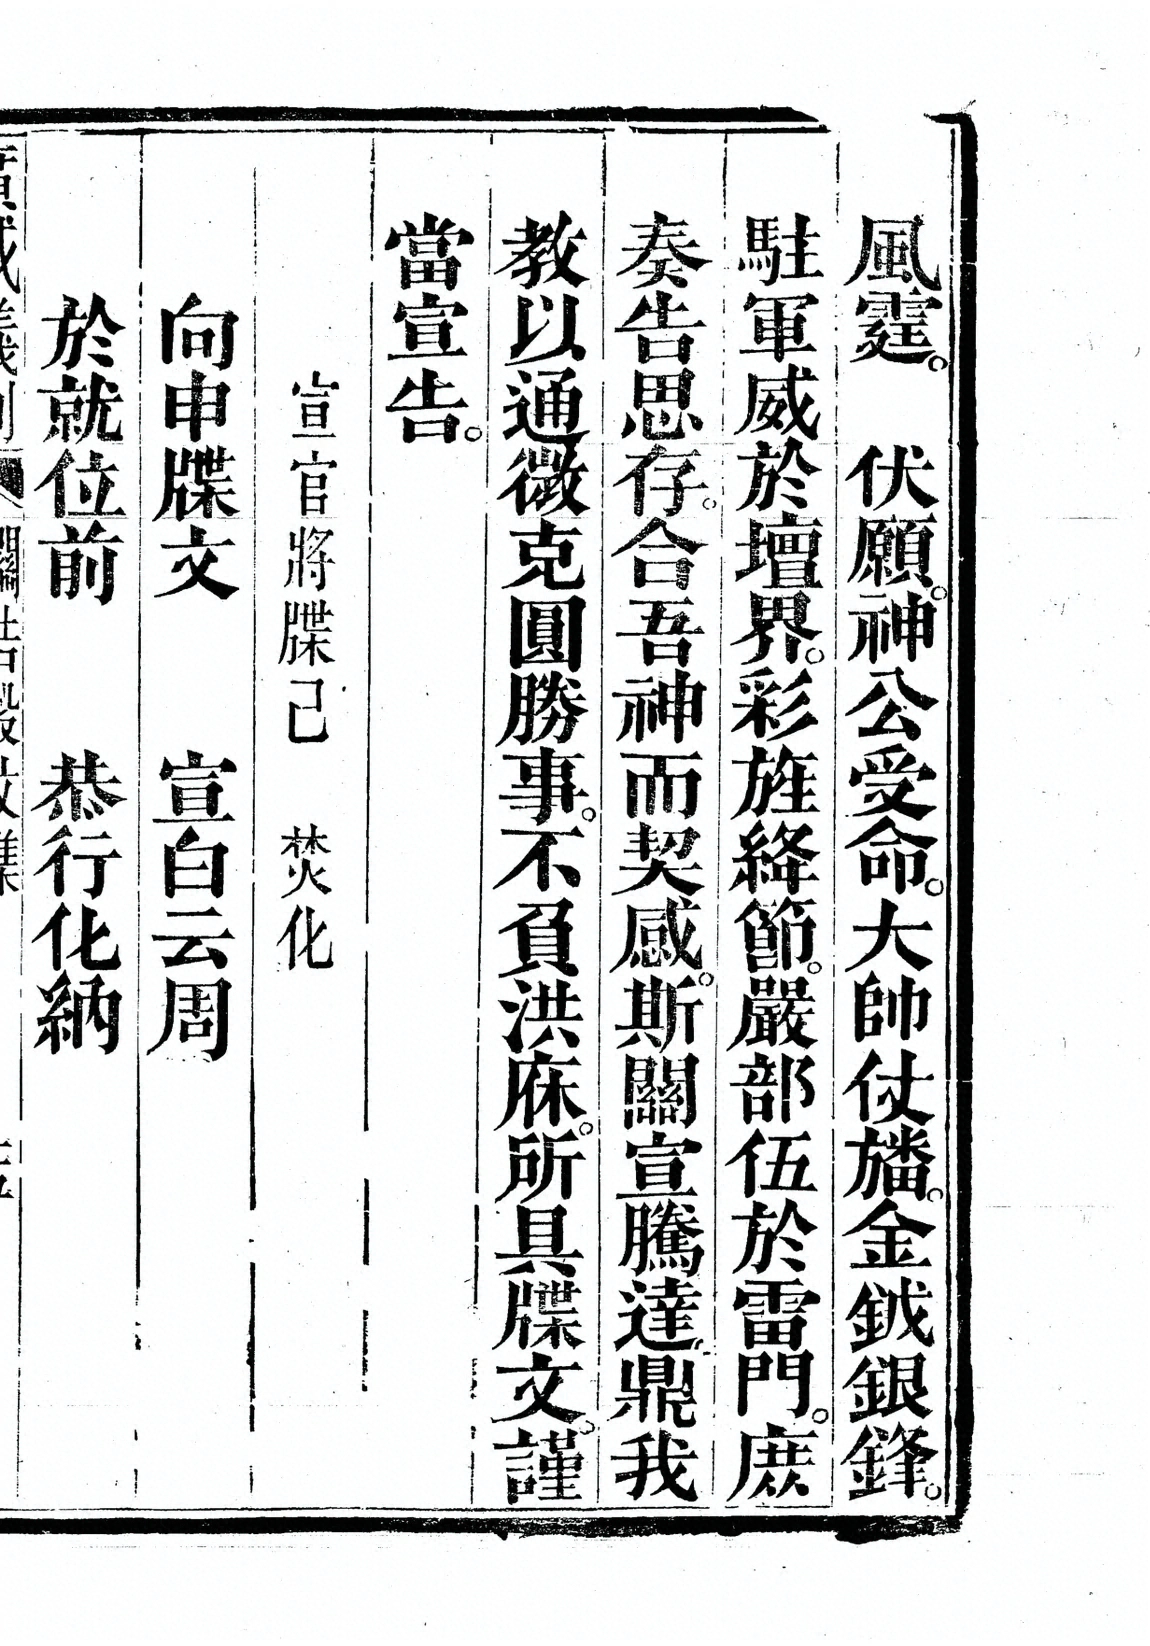 風霆。　伏願。神公受命。大帥仗旛。金鉞銀鋒。
駐軍威於壇界。彩旌絳節。嚴部伍於雷門。庶
奏告思存。合吾神而契感。斯關宣騰達。鼎我
教以通微克圓勝事。不負洪庥。所具牒文。謹
當宣告。
宣官將牒己　焚化
向申牒文　宣白云周
於就位前　恭行化納